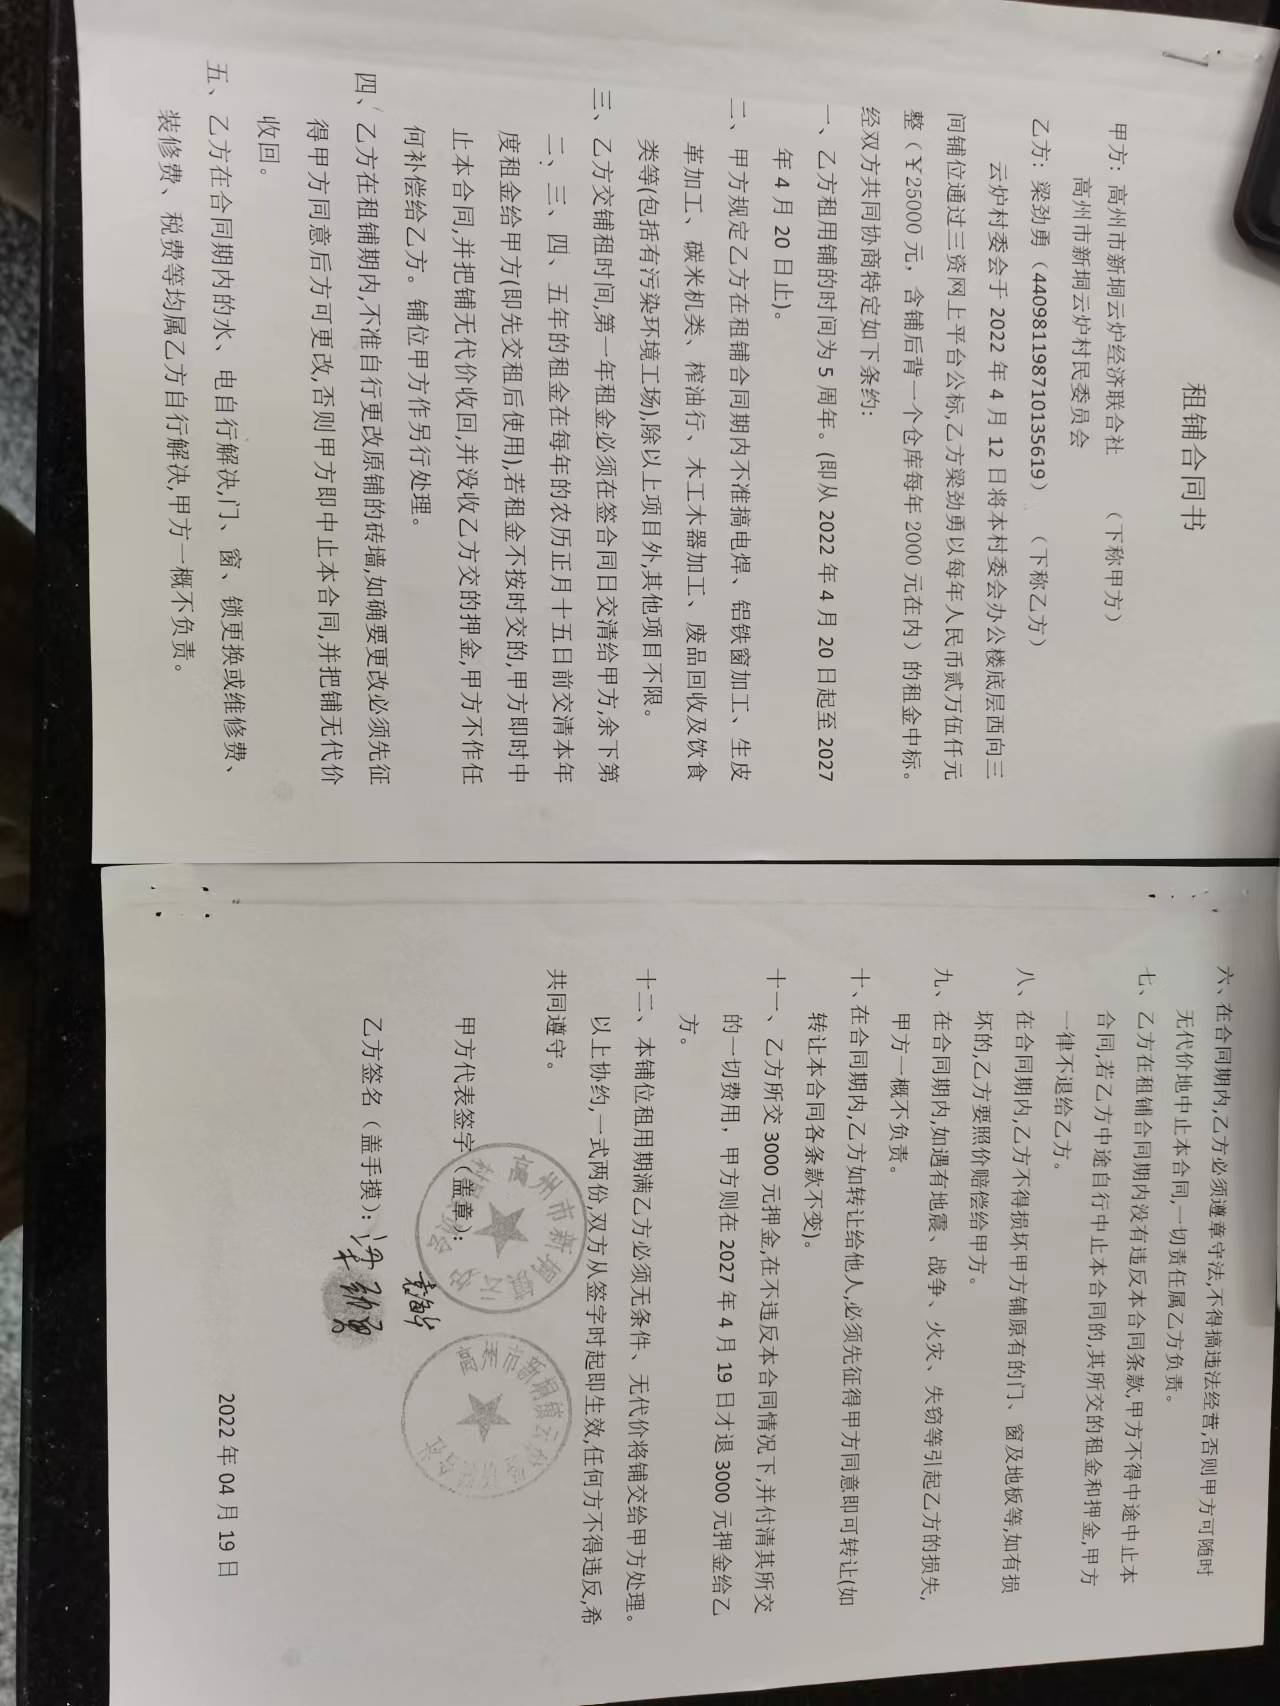 租铺合同书
甲方：高州市新垌云炉经济联合社 （下称甲方）
高州市新垌云炉村民委员会
乙方：梁劲勇（440981198710135619）（下称乙方）
云炉村委会于 2022 年 4 月 12 日将本村委会办公楼底层西向三
间铺位通过三资网上平台公标,乙方梁劲勇以每年人民币贰万伍仟元
整（￥25000 元，含铺后背一个仓库每年 2000 元在内）的租金中标。
经双方共同协商特定如下条约:
一、乙方租用铺的时间为 5 周年。(即从 2022 年 4 月 20 日起至 2027
年 4 月 20 日止)。
二、甲方规定乙方在租铺合同期内不准搞电焊、铝铁窗加工、生皮
革加工、碳米机类、榨油行、木工木器加工、废品回收及饮食
类等(包括有污染环境工场),除以上项目外,其他项目不限。
三、乙方交铺租时间,第一年租金必须在签合同日交清给甲方,余下第
二、三、四、五年的租金在每年的农历正月十五日前交清本年
度租金给甲方(即先交租后使用),若租金不按时交的,甲方即时中
止本合同,并把铺无代价收回,并没收乙方交的押金,甲方不作任
何补偿给乙方。铺位甲方作另行处理。
四、乙方在租铺期内,不准自行更改原铺的砖墙,如确要更改必须先征
得甲方同意后方可更改,否则甲方即中止本合同,并把铺无代价
收回。
五、乙方在合同期内的水、电自行解决,门、窗、锁更换或维修费、
装修费、税费等均属乙方自行解决,甲方一概不负责。
六、在合同期内,乙方必须遵章守法,不得搞违法经营,否则甲方可随时
无代价地中止本合同,一切责任属乙方负责。
七、乙方在租铺合同期内没有违反本合同条款,甲方不得中途中止本
合同,若乙方中途自行中止本合同的,其所交的租金和押金,甲方
一律不退给乙方。
八、在合同期内,乙方不得损坏甲方铺原有的门、窗及地板等,如有损
坏的,乙方要照价赔偿给甲方。
九、在合同期内,如遇有地震、战争、火灾、失窃等引起乙方的损失,
甲方一概不负责。
十、在合同期内,乙方如转让给他人,必须先征得甲方同意即可转让(如
转让本合同各条款不变)。
十一、乙方所交 3000 元押金,在不违反本合同情况下,并付清其所交
的一切费用，甲方则在 2027 年 4 月 19 日才退 3000 元押金给乙
方。
十二、本铺位租用期满乙方必须无条件、无代价将铺交给甲方处理。
以上协约,一式两份,双方从签字时起即生效,任何方不得违反,希
共同遵守。
甲方代表签字（盖章）:
高州市新垌镇云炉
高州市新垌镇云炉
乙方签名（盖手摸）: 梁劲勇
2022 年 04 月 19 日